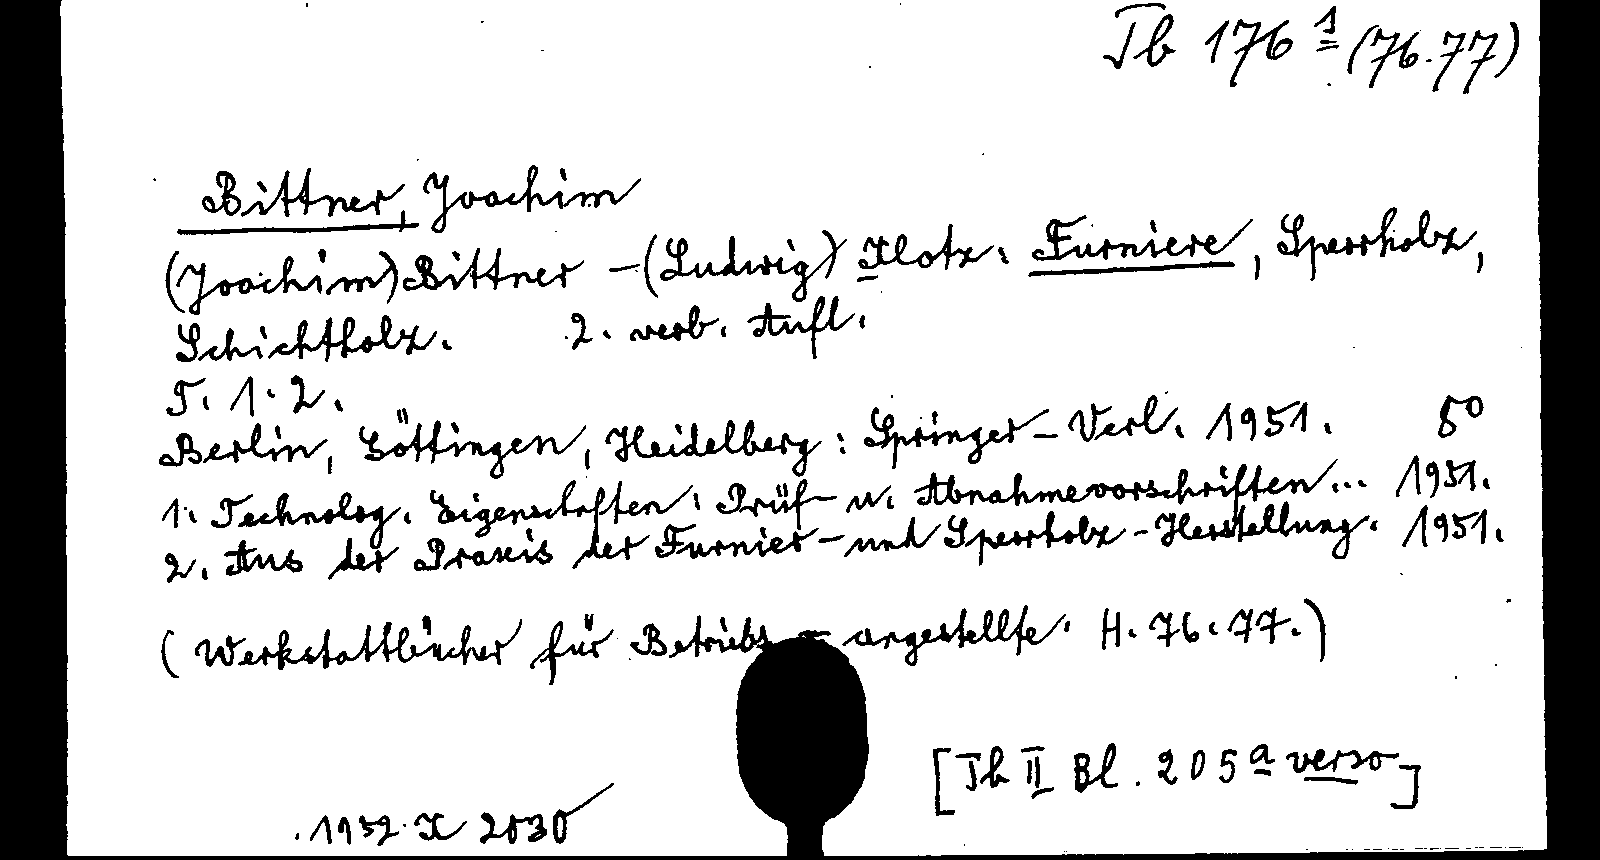 Tb 176 1 (76.77)
Bittner, Joachim
(Joachim) Bittner - (Ludwig) Klotz: Furniere, Sperrholz,
Schichtholz. 2. verb. Aufl.
T. 1. 2.
Berlin, Göttingen, Heidelberg: Springer-Verl. 1951. 8°
1. Technolog. Eigenschaften. Prüf- u. Abnahmevorschriften... 1951.
2. Aus der Praxis der Furnier- und Sperrholz-Herstellung. 1951.
(Werkstattbücher für Betriebs- angestellte. H. 76. 77.)
[Tb II Bl. 205 a verso]
1952. X 2030